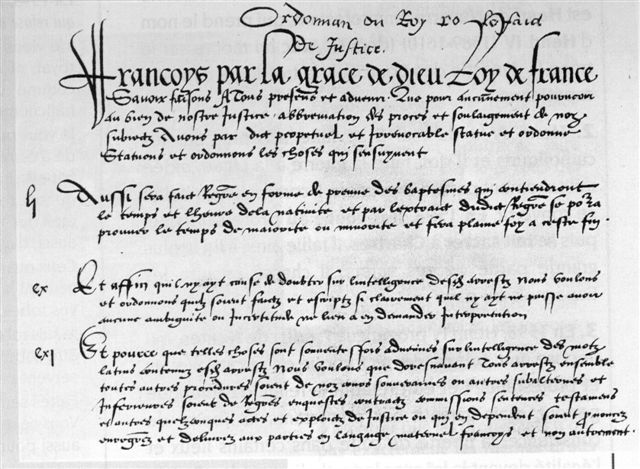 Ordonnan du Roy faict
De Justice.
Francoys par la grace de dieu Roy de france
Savoir faisons A Tous presens et advenir. Que pour aucunement pourveoir
au bien de nostre Justice abbreviation des proces et soulaigement de noz
subiectz Avons par edict perpetuel et Irrevocable statue et ordonne
Statuons et ordonnons les choses qui sensuyvent
Aussi sera faict Regre en forme de preuve des baptesmes qui contiendront
le temps et lheure dela nativite et par lextraict dudict Regre se pora
prouver le temps de maiorite ou minorite et fera plaine foy a ceste fin
ex Et affin quil ny ayt cause de doubter sur lintelligence desdz arrestz Nous voulons
et ordonnons quilz soient faictz et escriptz si clairement quil ny ayt ne puisse avoir
aucune ambiguite ou Incertitude ne lieu a en demander Interpretation
exj Et pource que telles choses sont souventesfois advenues sur lintelligence des motz
latins contenuz esdz arrestz Nous voulons que doresnavant Tous arrestz ensemble
toutes autres procedures soient de noz cours souveraines ou autres subalternes et
Inferieures soient de Regres enquestes contractz commissions sentences testamens
et autres quelzconques actes et exploictz de Justice ou qui en dependent soient prononcez
enregrez et delivrez aux parties en langaige maternel francoys et non autrement